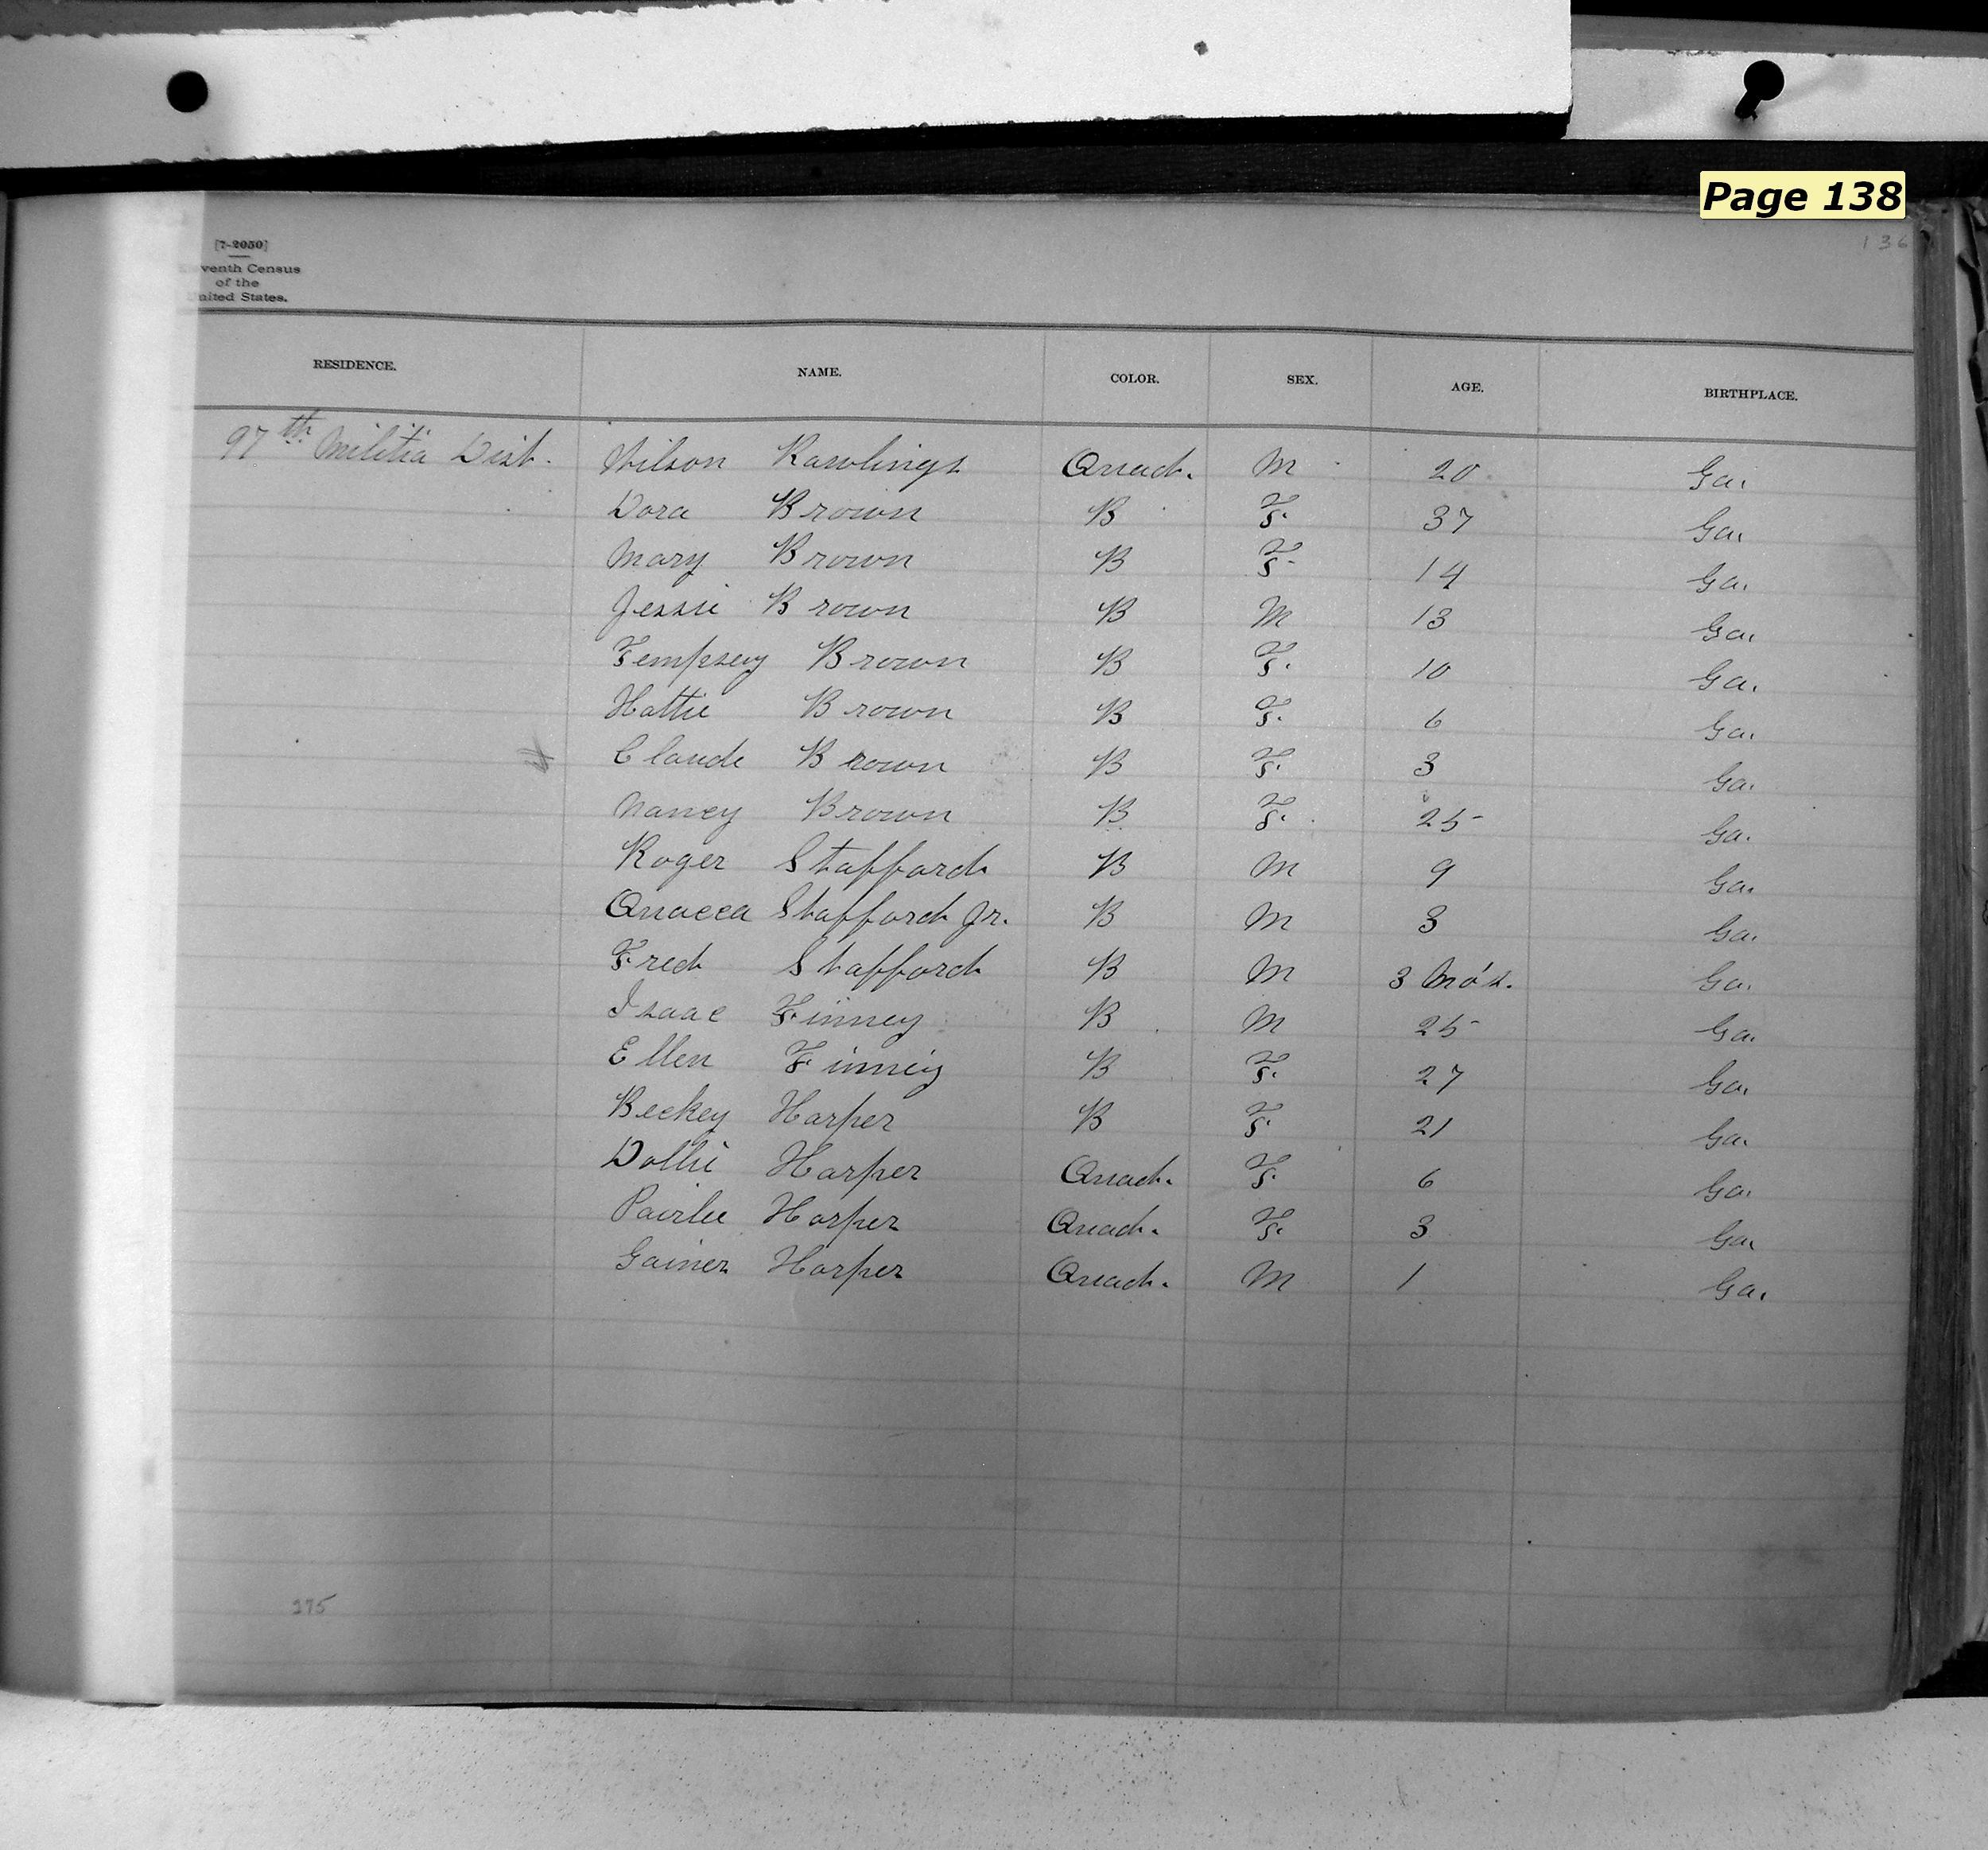 Page 138
136
[7-2050]
venth Census
of the
nited States.
RESIDENCE. NAME. COLOR. SEX. AGE. BIRTHPLACE.
97th Militia Dist. Wilson Rawlings Quad. M 20 Ga.
Dora Brown B F. 37 Ga.
Mary Brown B F. 14 Ga.
Jessie Brown B M 13 Ga.
Tempsey Brown B F. 10 Ga.
Hattie Brown B F. 6 Ga.
Claude Brown B F. 3 Ga.
Nancy Brown B F. 25 Ga.
Roger Stafford B M 9 Ga.
Quacca Stafford Jr. B M 3 Ga.
Fred Stafford B M 3 Mo's. Ga.
Isaac Finney B M 25 Ga.
Ellen Finney B F. 27 Ga.
Beckey Harper B F. 21 Ga.
Dollie Harper Quad. F. 6 Ga.
Pairlee Harper Quad. F. 3 Ga.
Gainer Harper Quad. M 1 Ga.
275